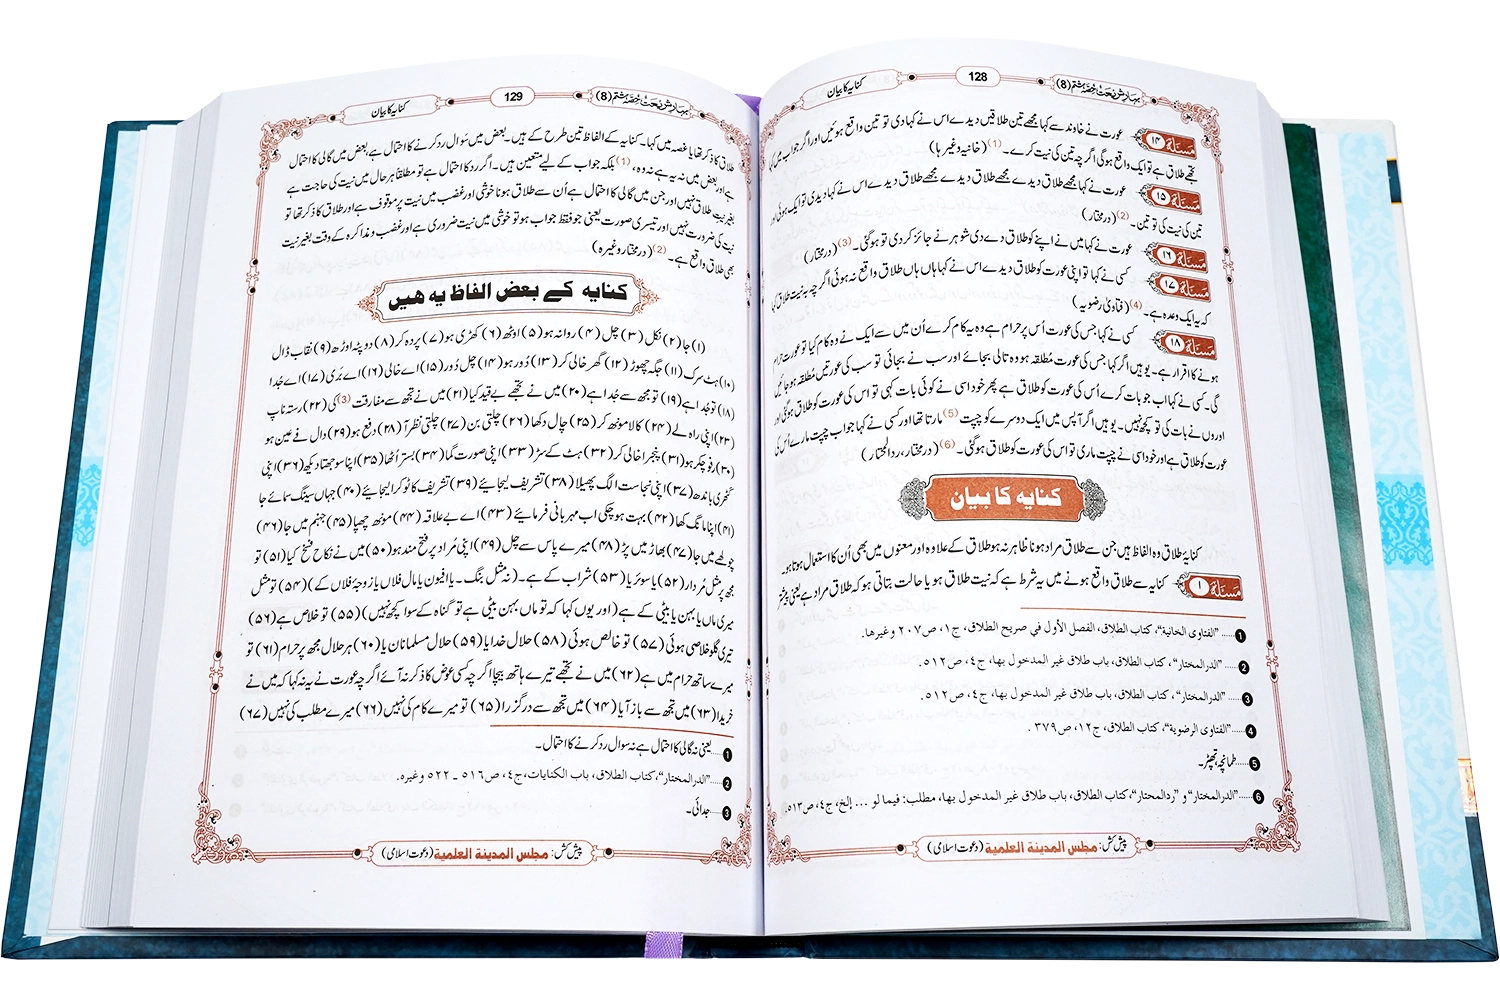 بہارِ شریعت حصّہ ہشتم (8)
128
کنایہ کا بیان
مسئلہ ۱۴ عورت نے خاوند سے کہا مجھے تین طلاقیں دیدے اس نے کہا دی تو تین واقع ہوئیں اور اگر جواب میں کہا
تجھے طلاق ہے تو ایک واقع ہوگی اگرچہ تین کی نیت کرے۔(1) (خانیہ وغیرہا)
مسئلہ ۱۵ عورت نے کہا مجھے طلاق دیدے مجھے طلاق دیدے مجھے طلاق دیدے اس نے کہا دیدی تو ایک ہوئی اور
تین کی نیت کی تو تین۔(2) (درمختار)
مسئلہ ۱۶ عورت نے کہا میں نے اپنے کو طلاق دے دی شوہر نے جائز کر دی تو ہوگئی۔(3) (درمختار)
مسئلہ ۱۷ کسی نے کہا تو اپنی عورت کو طلاق دیدے اس نے کہا ہاں ہاں طلاق واقع نہ ہوئی اگرچہ بہ نیت طلاق کہا
کہ یہ ایک وعدہ ہے۔(4) (فتاویٰ رضویہ)
مسئلہ ۱۸ کسی نے کہا جس کی عورت اُس پر حرام ہے وہ یہ کام کرے اُن میں سے ایک نے وہ کام کیا تو عورت حرام
ہونے کا اقرار ہے۔ یوہیں اگر کہا جس کی عورت مُطلقہ ہو وہ تالی بجائے اور سب نے بجائی تو سب کی عورتیں مُطلقہ ہو جائیں
گی۔ کسی نے کہا اب جو بات کرے اُس کی عورت کو طلاق ہے پھر خود اسی نے کوئی بات کہی تو اس کی عورت کو طلاق ہوگئی اور
اوروں نے بات کی تو کچھ نہیں۔ یوہیں اگر آپس میں ایک دوسرے کو چپت(5) مارتا تھا اور کسی نے کہا جواب چپت مارے اُس کی
عورت کو طلاق ہے اور خود اسی نے چپت ماری تو اس کی عورت کو طلاق ہوگئی۔(6) (درمختار، ردالمحتار)
کنایہ کا بیان
کنایۂ طلاق وہ الفاظ ہیں جن سے طلاق مراد ہونا ظاہر نہ ہو طلاق کے علاوہ اور معنوں میں بھی اُن کا استعمال ہوتا ہو۔
مسئلہ ۱ کنایہ سے طلاق واقع ہونے میں یہ شرط ہے کہ نیت طلاق ہو یا حالت بتاتی ہو کہ طلاق مراد ہے یعنی پیشتر
1 ......"الفتاوی الخانیة"، کتاب الطلاق، الفصل الأول في صریح الطلاق، ج۱، ص۲۰۷ وغیرھا.
2 ......"الدرالمختار"، کتاب الطلاق، باب طلاق غیر المدخول بھا، ج٤، ص۵۱۲.
3 ......"الدرالمختار"، کتاب الطلاق، باب طلاق غیر المدخول بھا، ج٤، ص۵۱۲.
4 ......"الفتاوی الرضویة"، کتاب الطلاق، ج۱۲، ص۳۷۹.
5 ......طمانچہ، تھپڑ۔
6 ......"الدرالمختار" و "ردالمحتار"، کتاب الطلاق، باب طلاق غیر المدخول بھا، مطلب: فیما لو ... إلخ، ج٤، ص۵۱۳.
پیش کش: مجلس المدينة العلمية (دعوت اسلامی)
بہارِ شریعت حصّہ ہشتم (8)
129
کنایہ کا بیان
طلاق کا ذکر تھا یا غصہ میں کہا۔ کنایہ کے الفاظ تین طرح کے ہیں۔ بعض میں سوال رد کرنے کا احتمال ہے، بعض میں گالی کا احتمال
ہے اور بعض میں نہ یہ ہے نہ وہ،(1) بلکہ جواب کے لیے متعین ہیں۔ اگر رد کا احتمال ہے تو مطلقاً ہر حال میں نیت کی حاجت ہے
بغیر نیت طلاق نہیں اور جن میں گالی کا احتمال ہے اُن سے طلاق ہونا خوشی اور غضب میں نیت پر موقوف ہے اور طلاق کا ذکر تھا تو
نیت کی ضرورت نہیں اور تیسری صورت یعنی جو فقط جواب ہو تو خوشی میں نیت ضروری ہے اور غضب و مذاکرہ کے وقت بغیر نیت
بھی طلاق واقع ہے۔(2) (درمختار وغیرہ)
کنایہ کے بعض الفاظ یہ ہیں
(۱) جا (۲) نکل (۳) چل (۴) روانہ ہو (۵) اوٹھ (۶) کھڑی ہو (۷) پردہ کر (۸) دوپٹہ اوڑھ (۹) نقاب ڈال
(۱۰) ہٹ سرک (۱۱) جگہ چھوڑ (۱۲) گھر خالی کر (۱۳) دُور ہو (۱۴) چل دُور (۱۵) اے خالی (۱۶) اے بَری (۱۷) اے جُدا
(۱۸) تو جُدا ہے (۱۹) تو مجھ سے جُدا ہے (۲۰) میں نے تجھے بے قید کیا (۲۱) میں نے تجھ سے مفارقت(3) کی (۲۲) رستہ ناپ
(۲۳) اپنی راہ لے (۲۴) کالا مونھ کر (۲۵) چال دکھا (۲۶) چلتی بن (۲۷) چلتی نظر آ (۲۸) دفع ہو (۲۹) دال نے عین ہو
(۳۰) رفو چکر ہو (۳۱) پنجرا خالی کر (۳۲) ہٹ کے سڑ (۳۳) اپنی صورت گما (۳۴) بستر اُٹھا (۳۵) اپنا سوجھتا دیکھ (۳۶) اپنی
گٹھری باندھ (۳۷) اپنی نجاست الگ پھیلا (۳۸) تشریف لیجائیے (۳۹) تشریف کا ٹوکرا لیجائیے (۴۰) جہاں سینگ سمائے جا
(۴۱) اپنا مانگ کھا (۴۲) بہت ہوچکی اب مہربانی فرمائیے (۴۳) اے بے علاقہ (۴۴) مونھ چھپا (۴۵) جہنم میں جا (۴۶)
چولھے میں جا (۴۷) بھاڑ میں پڑ (۴۸) میرے پاس سے چل (۴۹) اپنی مُراد پر فتح مند ہو (۵۰) میں نے نکاح فسخ کیا (۵۱) تو
مجھ پر مثل مُردار (۵۲) یا سوئر یا (۵۳) شراب کے ہے۔ (نہ مثل بنگ۔ یا افیون یا مال فلاں یا زوجۂ فلاں کے) (۵۴) تو مثل
میری ماں یا بہن یا بیٹی کے ہے (اور یوں کہا کہ تو ماں بہن بیٹی ہے تو گناہ کے سوا کچھ نہیں) (۵۵) تو خلاص ہے (۵۶)
تیری گلو خلاصی ہوئی (۵۷) تو خالص ہوئی (۵۸) حلال خدا یا (۵۹) حلال مسلمانان یا (۶۰) ہر حلال مجھ پر حرام (۶۱) تو
میرے ساتھ حرام میں ہے (۶۲) میں نے تجھے تیرے ہاتھ بیچا اگرچہ کسی عوض کا ذکر نہ آئے اگرچہ عورت نے یہ نہ کہا کہ میں نے
خریدا (۶۳) میں تجھ سے باز آیا (۶۴) میں تجھ سے درگزرا (۶۵) تو میرے کام کی نہیں (۶۶) میرے مطلب کی نہیں (۶۷)
1 ......یعنی نہ گالی کا احتمال ہے نہ سوال رد کرنے کا احتمال۔
2 ......"الدرالمختار"، کتاب الطلاق، باب الکنایات، ج٤، ص۵۱٦ ۔ ۵۲۲ وغیرہ.
3 ......جدائی۔
پیش کش: مجلس المدينة العلمية (دعوت اسلامی)